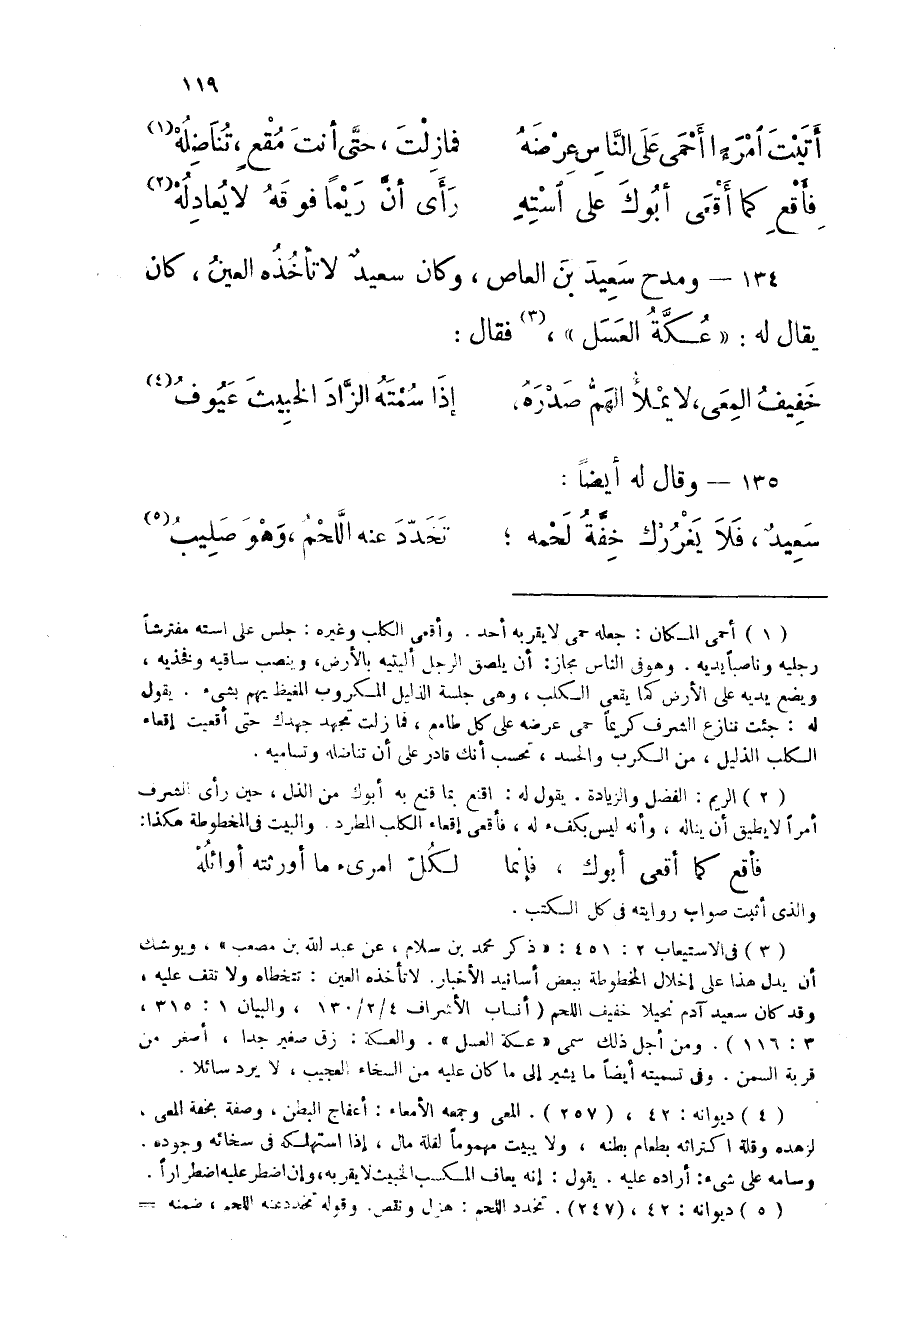 ١١٩
أَتَيْتَ ٱمْرَءًا أَحْمَى عَلَى النَّاسِ عِرْضَهُ فمازِلْتَ ، حتَّى أنتَ مُقْعٍ ، تُنَاضِلُهْ (١)
فِأَقْعِ كما أَقْعَى أبُوكَ على ٱسْتِهِ رَأَى أنَّ رَيْمًا فوقَهُ لا يُعادِلُهْ (٢)
١٣٤ — ومدح سَعِيدَ بنَ العاص ، وكان سعيدٌ لا تأخُذُه العينُ ، كان
يقال له : « عُكَّةُ العَسَل » ، (٣) فقال :
خَفِيفُ المِعَى ، لا يَمْلأُ الهَمُّ صَدْرَهُ ، إذَا سُمْتَهُ الزَّادَ الخبيثَ عَيُوفُ (٤)
١٣٥ — وقال له أيضاً :
سَعِيدٌ ، فَلَا يَغْرُرْك خِفَّةُ لَحْمه ؛ تَخَدّدَ عنه اللَّحْمُ ، وَهْوَ صَلِيبُ (٥)
( ١ ) أحمى المكان : جعله حمى لا يقربه أحد . وأقعى الكلب وغيره : جلس على استه مفترشاً
رجليه وناصباً يديه . وهو فى الناس مجاز : أن يلصق الرجل أليتيه بالأرض ، وينصب ساقيه وفخذيه ،
ويضع يديه على الأرض كما يقعى الكلب ، وهى جلسة الذليل المكروب المغيظ يهم بشىء . يقول
له : جئت تنازع الشرف كريماً حمى عرضه على كل طامع ، فما زلت تجهد جهدك حتى أقعيت إقعاء
الكلب الذليل ، من الكرب والحسد ، تحسب أنك قادر على أن تناضله وتساميه .
( ٢ ) الريم : الفضل والزيادة . يقول له : اقنع بما قنع به أبوك من الذل ، حين رأى الشرف
أمراً لا يطيق أن يناله ، وأنه ليس بكفء له ، فأقعى إقعاء الكلب المطرد . والبيت فى المخطوطة هكذا :
فأقع كما أقعى أبوك ، فإنما لكُلّ امرىء ما أورثته أوائلُهْ
والذى أثبت صواب روايته فى كل الكتب .
( ٣ ) فى الاستيعاب ٢ : ٤٥١ : « ذكر محمد بن سلام ، عن عبد الله بن مصعب » ، ويوشك
أن يدل هذا على إخلال المخطوطة ببعض أسانيد الأخبار . لا تأخذه العين : تتخطاه ولا تقف عليه ،
وقد كان سعيد آدم نحيلا خفيف اللحم ( أنساب الأشراف ٤/٢/١٣٠ ، والبيان ١ : ٣١٥ ،
٣ : ١١٦ ) . ومن أجل ذلك سمى « عكة العسل » . والعكة : زق صغير جدا ، أصغر من
قربة السمن . وفى تسميته أيضاً ما يشير إلى ما كان عليه من السخاء العجيب ، لا يرد سائلا .
( ٤ ) ديوانه : ٤٢ ، ( ٢٥٧ ) . المعى وجمعه الأمعاء : أعفاج البطن ، وصفة بخفة المعى ،
لزهده وقلة اكتراثه بطعام بطنه ، ولا يبيت مهموماً لقلة مال ، إذا استهلكه فى سخائه وجوده .
وسامه على شىء : أراده عليه . يقول : إنه يعاف المكسب الخبيث لا يقربه ، وإن اضطر عليه اضطراراً .
( ٥ ) ديوانه : ٤٢ ، (٢٤٧) . تخدد اللحم : هزل ونقص . وقوله تخدد عنه اللحم ، ضمنه =